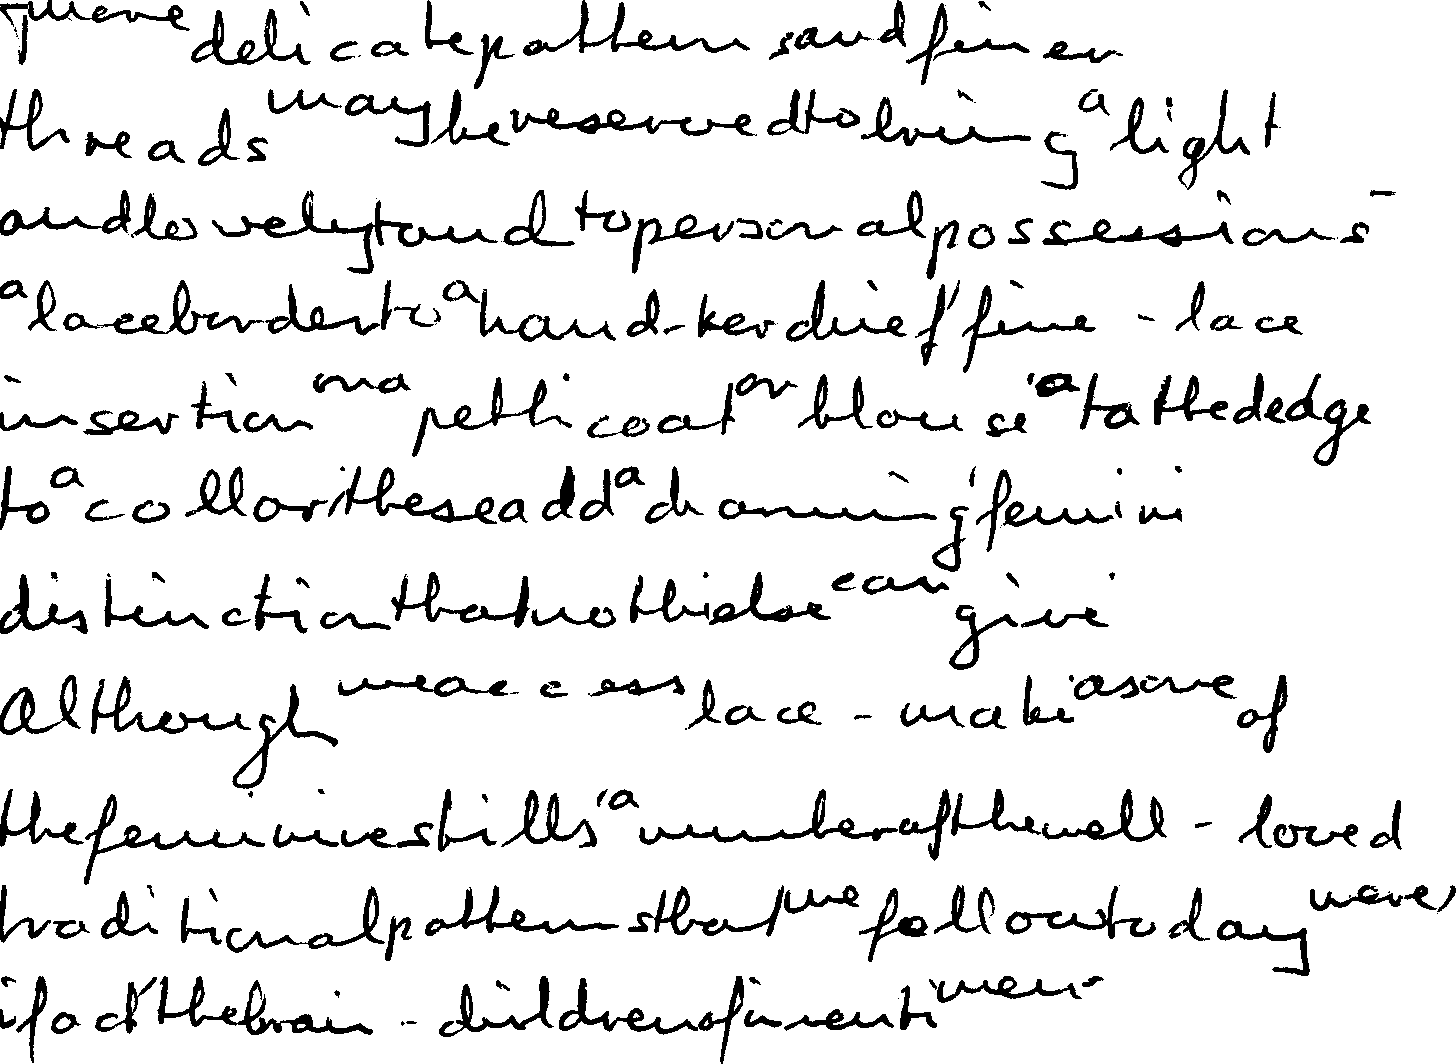 more delicate patterns and finer
threads may be reserved to bring a light
and lovely touch to personal possessions -
a lace border to a hand-kerchief, fine - lace
insertion on a petticoat or blouse, a tatted edge
to a collar, these add a charming, femini
distinction that nothi else can give
Although we access lace - maki as one of
the feminine skills, a number of the well - loved
traditional patterns that we follow today were,
i fact, the brain - children of inventi men.